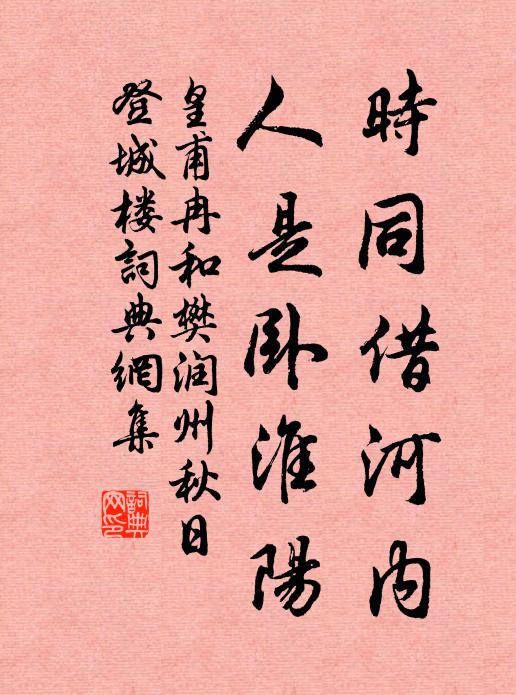 時同借河内
人是卧淮陽
皇甫冉和樊润州秋日
登城楼詞典網集
詞典
网印